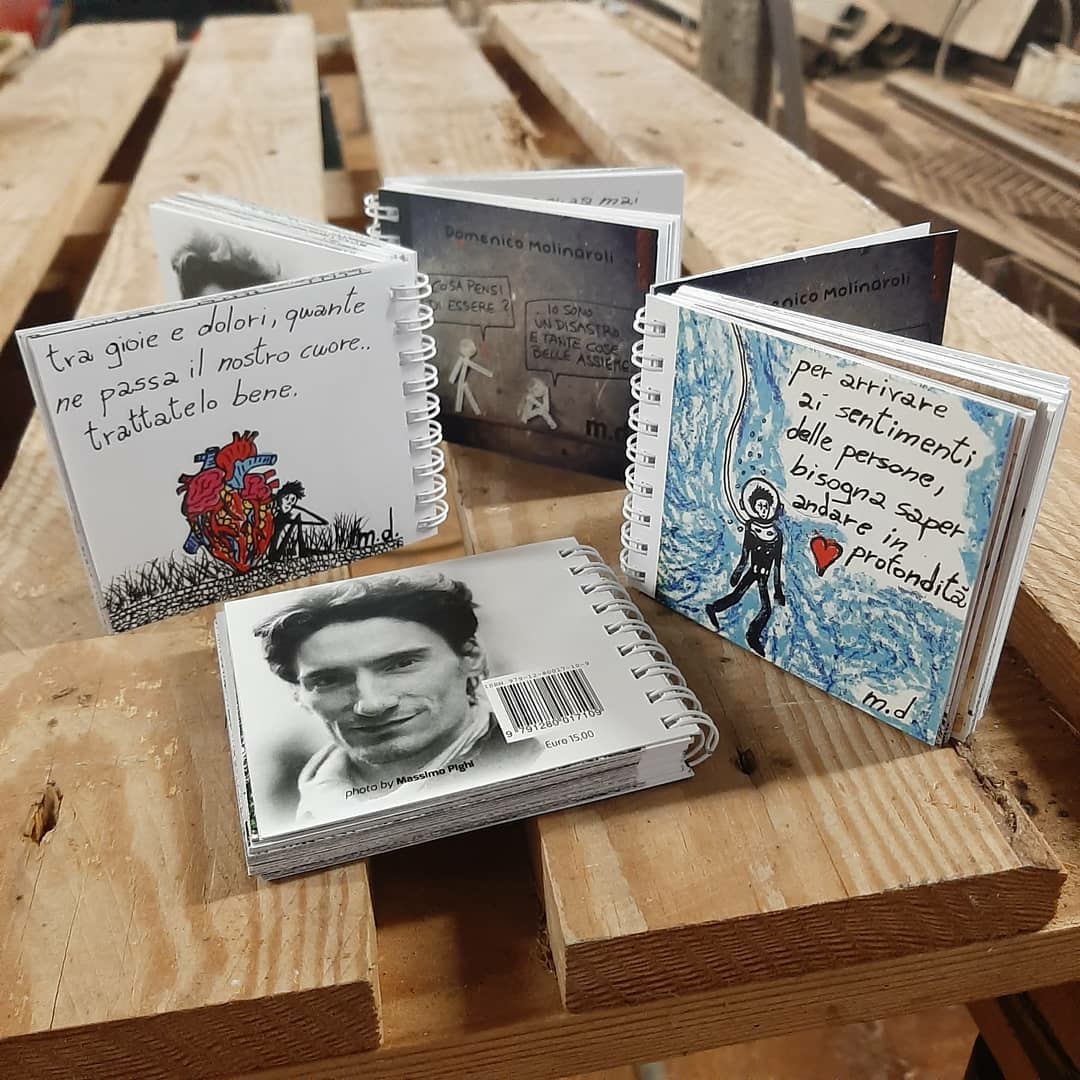 tra gioie e dolori, quante
ne passa il nostro cuore..
trattatelo bene.
m.d.
si mai
Domenico Molinaroli
COSA PENSI
DI ESSERE?
IO SONO
UN DISASTRO
E TANTE COSE
BELLE ASSIEME
m.d
nico Molinaroli
per arrivare
ai sentimenti
delle persone,
bisogna saper
andare in
profondità
m.d
ISBN 979-12-80017-10-9
9 791280 017109
Euro 15,00
photo by Massimo Pighi